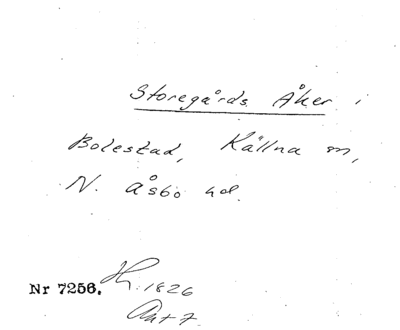 Storegårds Åker i
Bolestad, Källna sn,
N. Åsbo hd.
Nr 7256. H. 1826
Akt 7